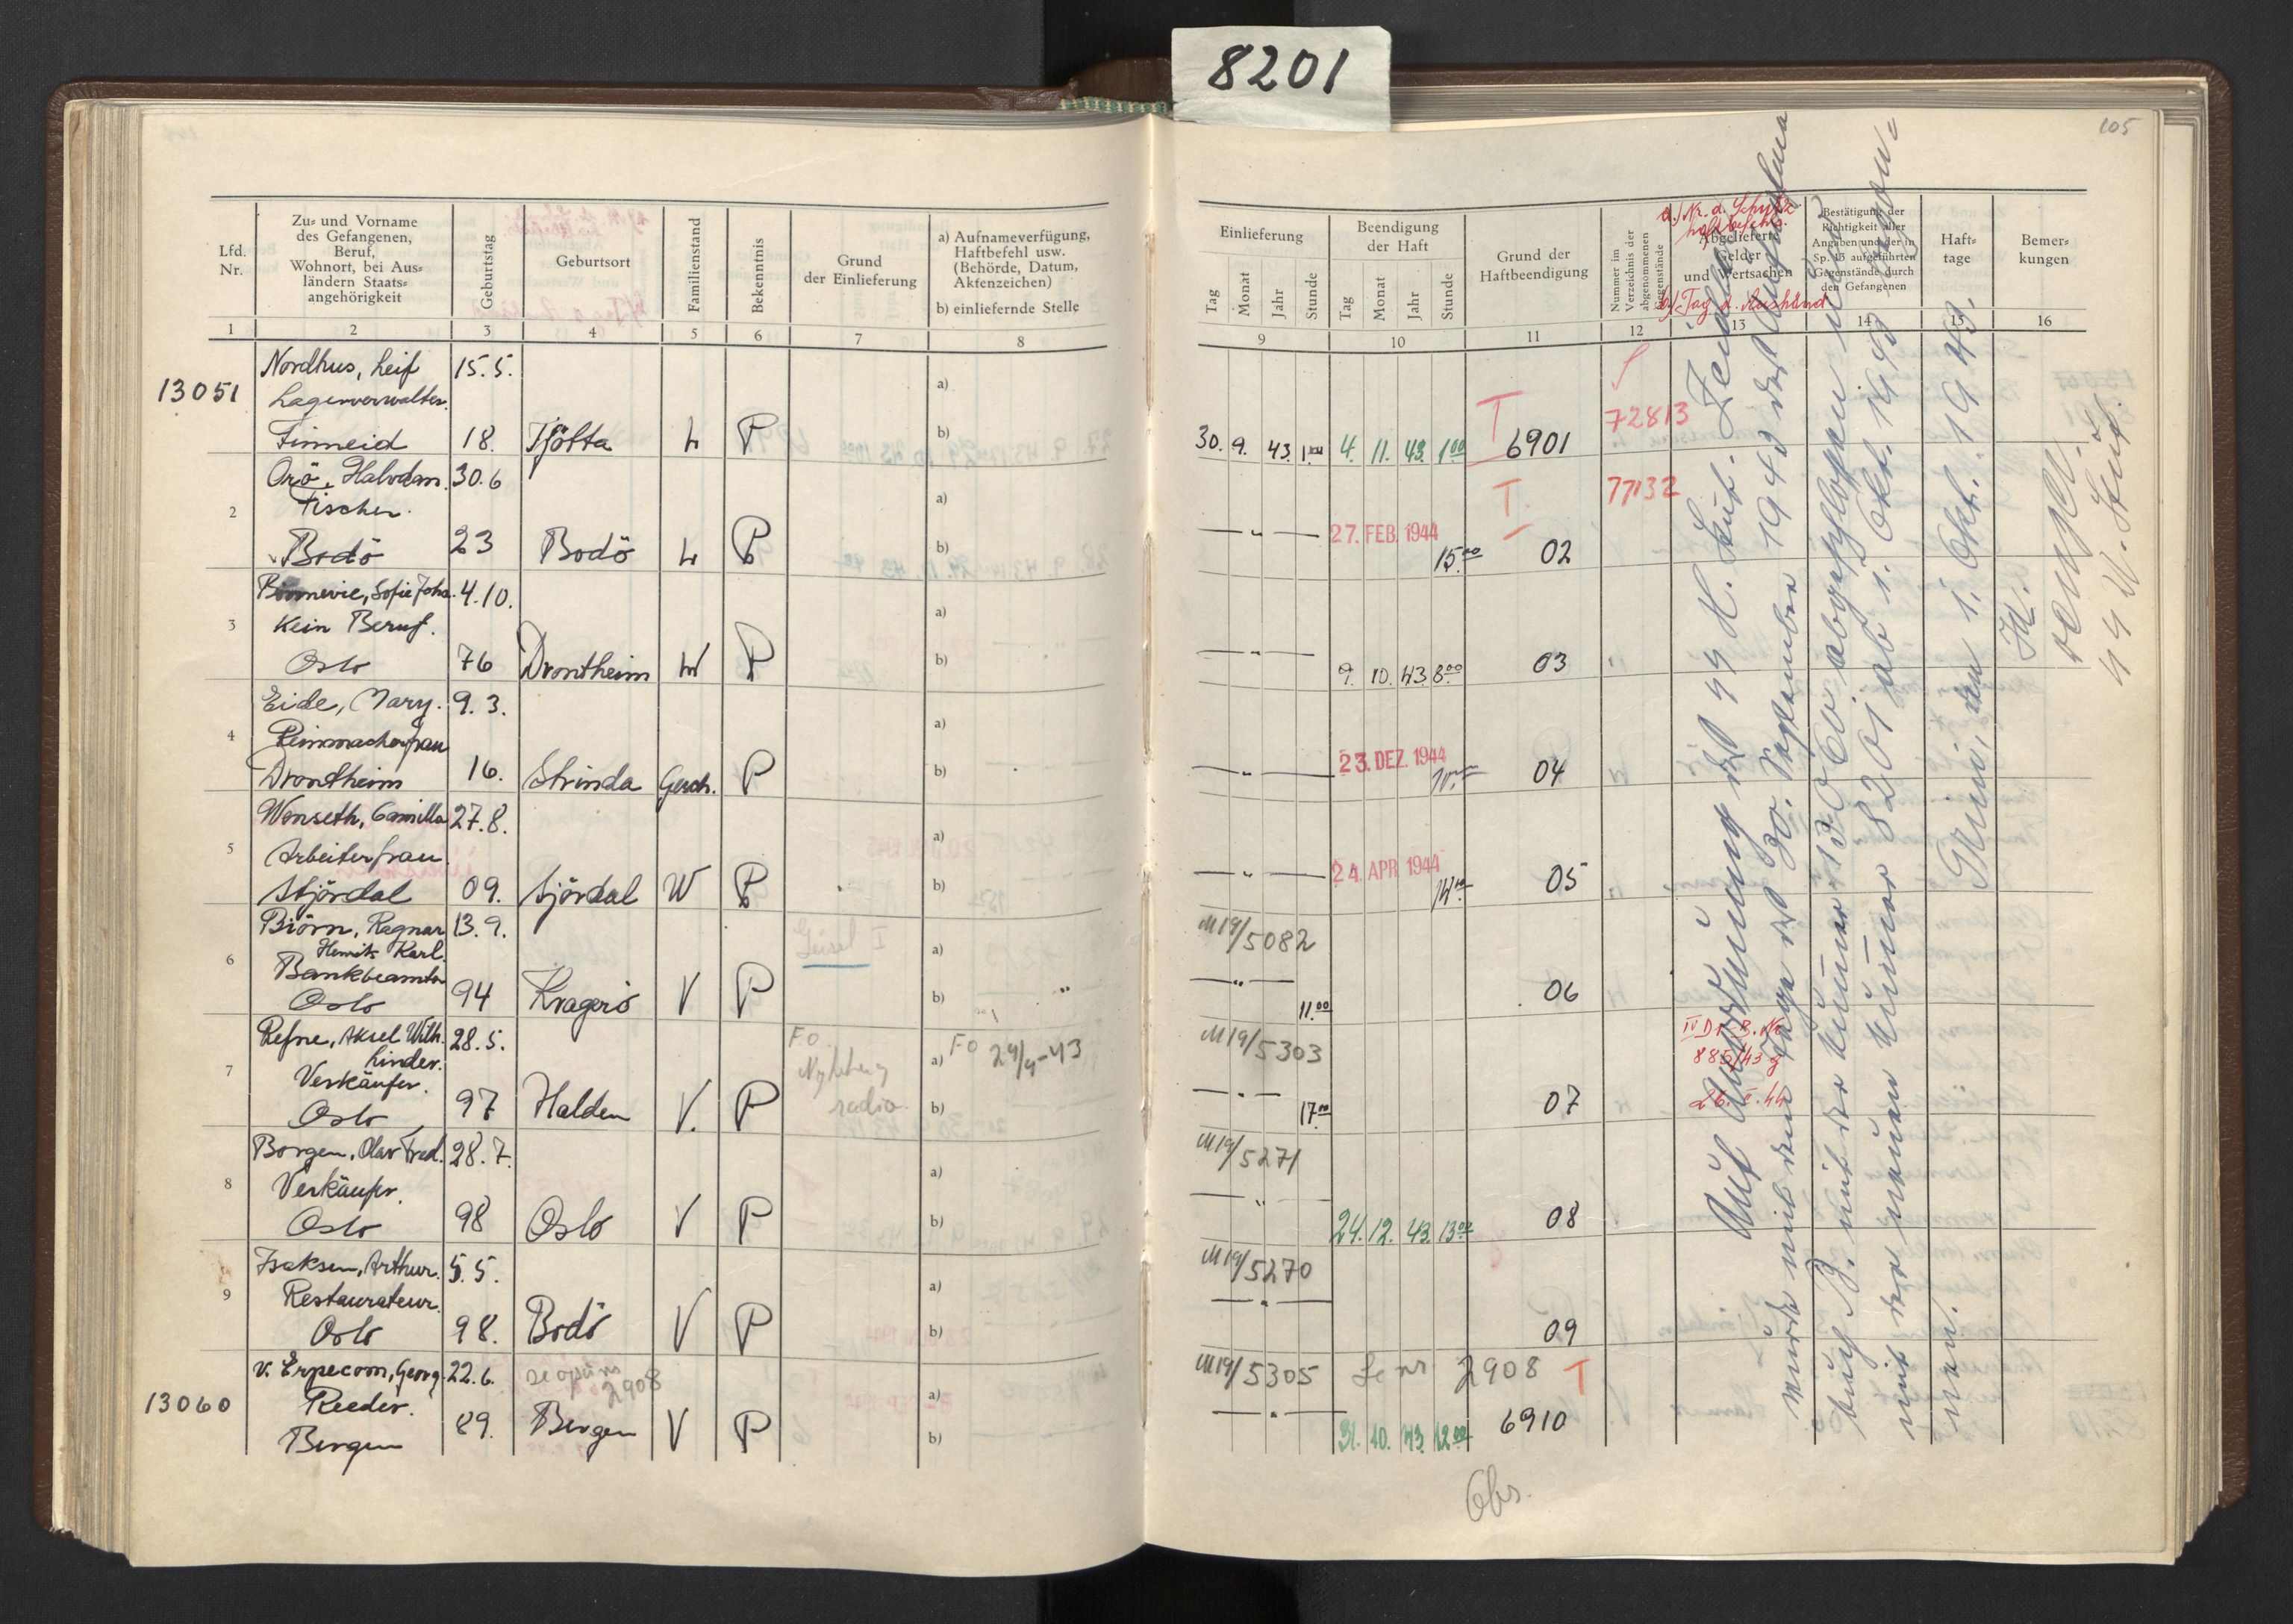 8201
105
Lfd.
Nr.
Zu- und Vorname
des Gefangenen,
Beruf,
Wohnort, bei Aus-
ländern Staats-
angehörigkeit
Geburtstag
Geburtsort
Familienstand
Bekenntnis
Grund
der Einlieferung
a) Aufnameverfügung,
Haftbefehl usw.
(Behörde, Datum,
Aktenzeichen)
b) einliefernde Stelle
1 2 3 4 5 6 7 8
Nordhus, Leif 15.5.
13051 Lagerverwalter. a)
Finneid 18. Tjötta L P b)
Orö, Halvdan. 30.6
2 Fischer. a)
Bodö 23 Bodö L P b)
Sofie Joha. 4.10.
3 Kein Beruf. a)
Oslo 76 Drontheim W P b)
Eide, Mary. 9.3.
4 a)
Drontheim 16. Strinda Gesch. P b)
Wonseth, Camilla 27.8.
5 Arbeiterfrau. a)
Stjördal 09. Stjördal W P b)
Biörn, Ragnar 13.9.
6 Karl. Geisel I a)
Bankbeamter
Oslo 94 Kragerö V P b)
Refne, Aksel Wilh. 28.5. FO
7 Linder. a) FO 29/9-43
Verkäufer.
Oslo 97 Halden V. P radio. b)
Borgen, Olav Fred. 28.7.
8 Verkäufer. a)
Oslo 98 Oslo V P b)
Isaksen, Arthur. 5.5.
9 Restaurateur. a)
Oslo 98. Bodö V P b)
v. Erpecom, Georg. 22.6. 2908
13060 Reeder. a)
Bergen 89. Bergen V P b)
Einlieferung
Tag Monat Jahr Stunde
Beendigung
der Haft
Tag Monat Jahr Stunde
Grund der
Haftbeendigung
Nummer im
Verzeichnis der
abgenommenen
Gegenstände
a.) Nr. d. Schutz-
haftbefehls.
Abgelieferte
Gelder
und Wertsachen
b.) Tag d. Aushänd.
Bestätigung der
Richtigkeit aller
Angaben und der in
Sp. 13 aufgeführten
Gegenstände durch
den Gefangenen
Haft-
tage
Bemer-
kungen
9 10 11 12 13 14 15 16
T 72813
30. 9. 43. 1.00 4. 11. 43. 1.00 6901
T. 77132
— " — 27. FEB. 1944 15.00 02
— " — 9. 10. 43 8.00 03
— " — 23. DEZ. 1944 04
— " — 24. APR 1944 05
M19/5082
— " — 11.00 06
M19/5303
— " — 17.00 07
M19/5271
— " — 24. 12. 43. 13.00 08
M19/5270
— " — 09
M19/5305 2908 T
— " — 31. 10. 43. 12.00 6910
Obs.
Auf Anordnung des SS H. Stuf. Zeidler
wurde mit dem Tage des 30. September 1943 das Aufnahme-
buch B. mit der Nummer 13060 abgeschlossen und
mit der neuen Nummer 8201 ab 1. Okt. 1943 begon-
nen.
Grini, den 1. Okt. 1943.